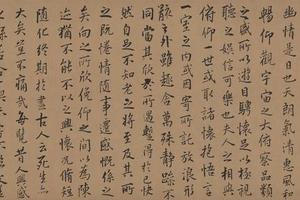 幽情是日也天朗氣清惠風和
暢仰觀宇宙之大俯察品類
之盛所以遊目騁懷足以極視
聽之娛信可樂也夫人之相與
俯仰一世或取諸懷抱悟言
一室之內或因寄所託放浪形
骸之外雖趣舍萬殊靜躁不
同當其欣於所遇暫得於己快
然自足不知老之將至及其所
之既惓情隨事遷感慨係
之矣向之所欣俛仰之間以為陳
迹猶不能不以之興懷況脩短
隨化終期於盡古人云死生亦
大矣豈不痛哉每攬昔人興感